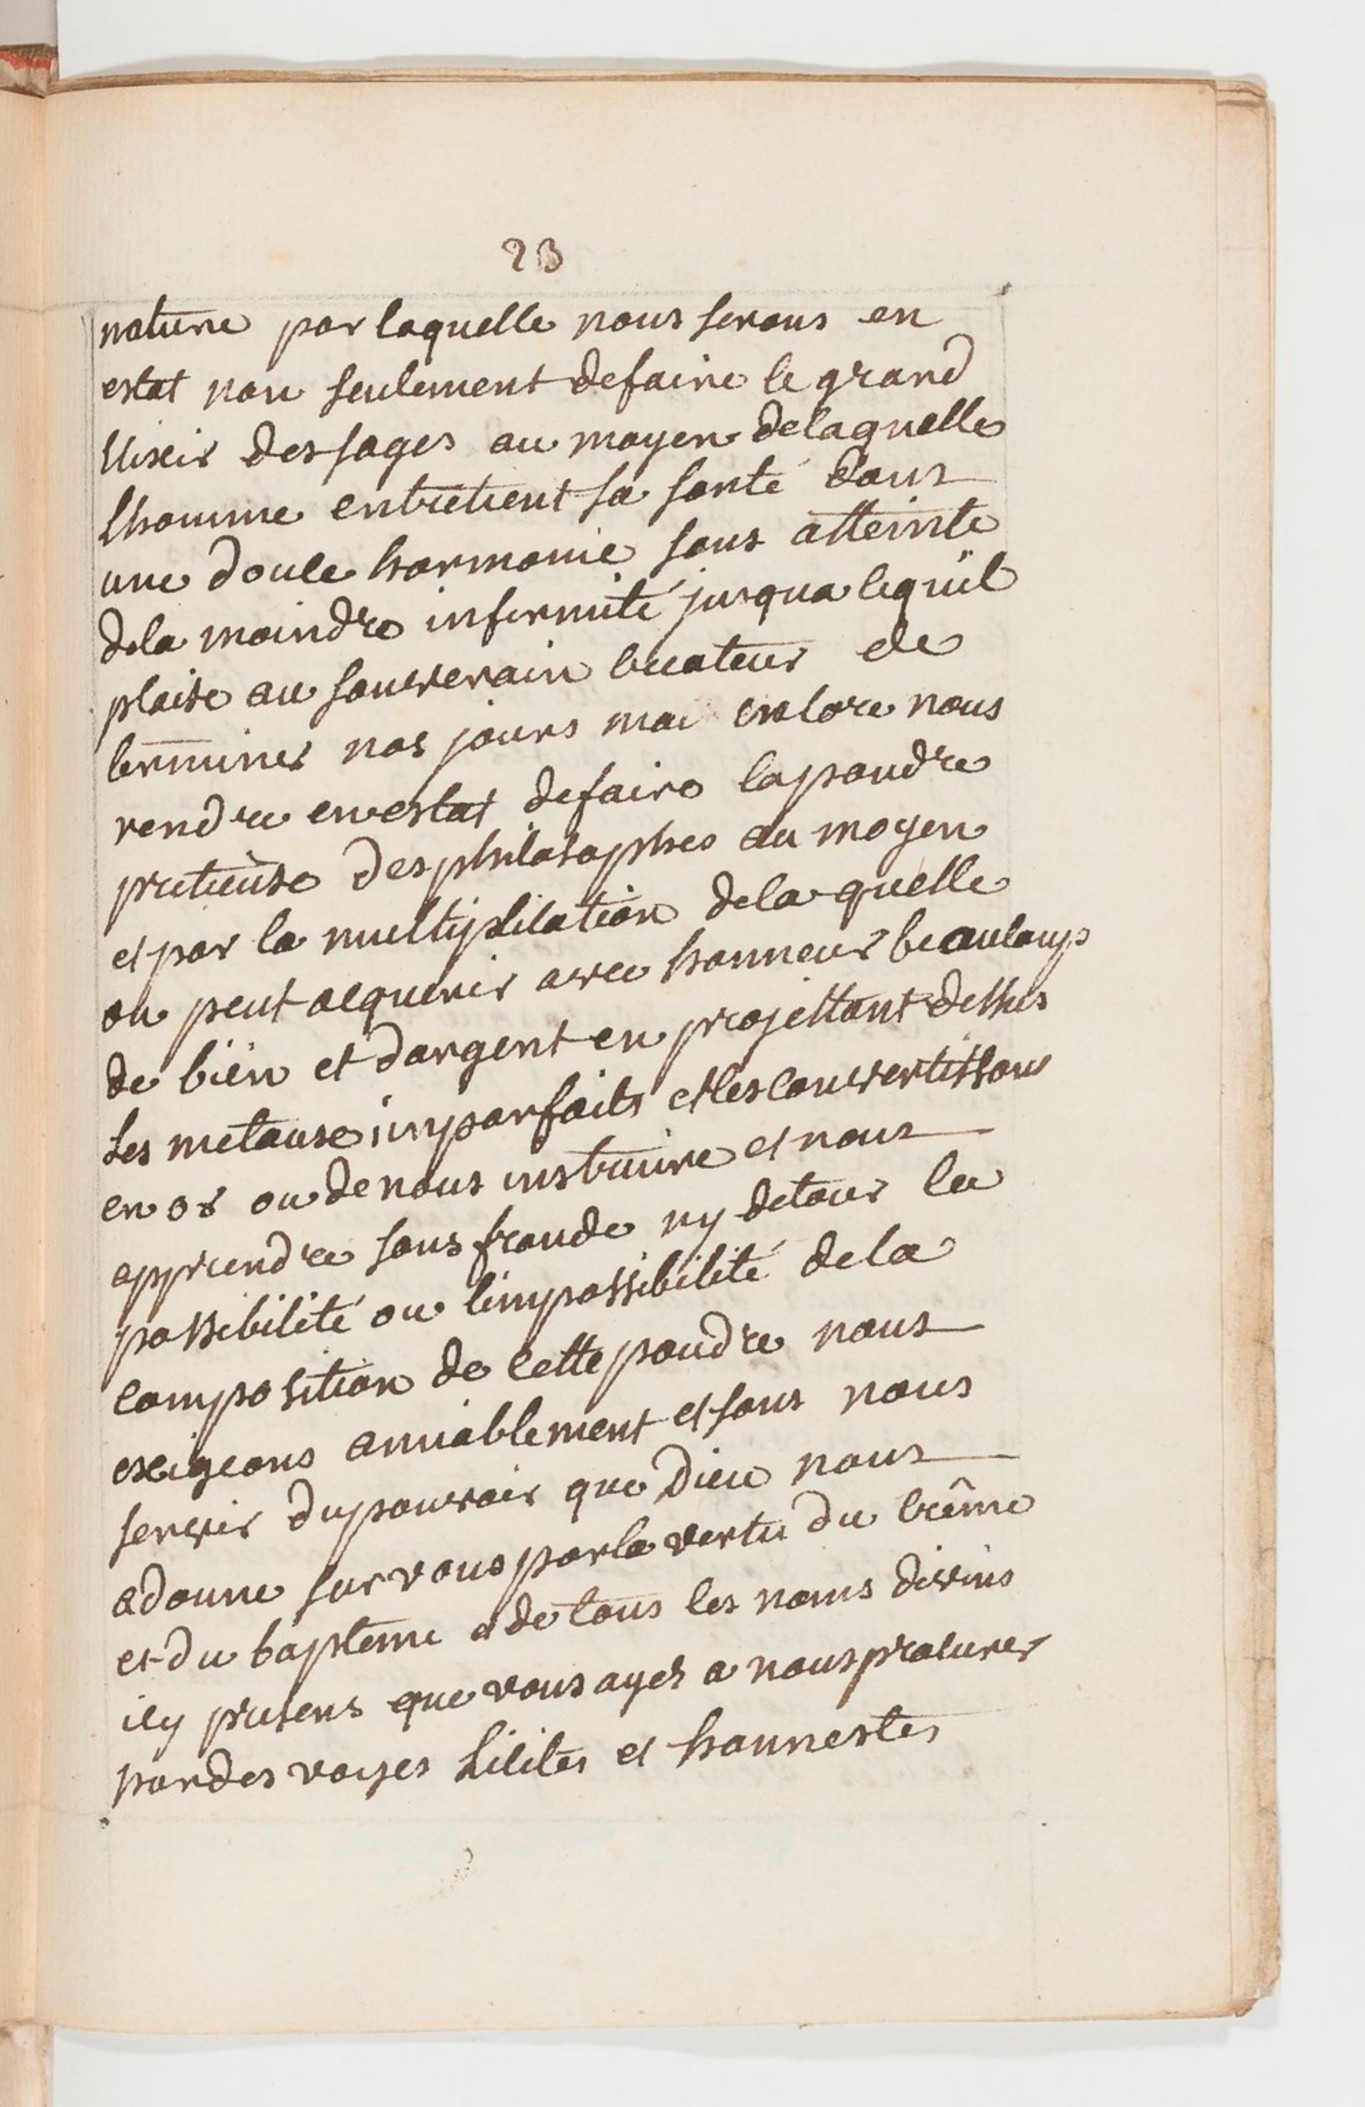 23
nature par laquelle nous serons en
estat non seulement defaire le grand
Elixir des sages au moyen delaquelle
lhomme entretient sa santé dans
une douce harmonie sans atteinte
dela moindre infirmité jusqua cequil
plaise au souverain createur de
terminer nos jours mai encore nous
rendre en estat defaire lapoudre
pretieuse des philosophes au moyen
et par la multiplication dela quelle
on peut acquerir avec honneur beaucoup
de bien et dargent en projettant dessus
Les metaux imparfaits et les convertissans
en or ou de nous instruire et nous
apprendre sans fraude ny detour la
possibilité ou limpossibilité de la
composition de cette poudre nous
exigeons amiablement et sans nous
servir du pouvoir que Dieu nous
a donne sur vous par la vertu du crême
et du bapteme et de tous les noms divins
icy presens que vous ayez a nous procurer
par des voyes licites et honnestes